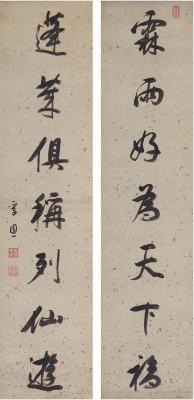 霖雨好為天下福
蓬萊俱稱列仙遊